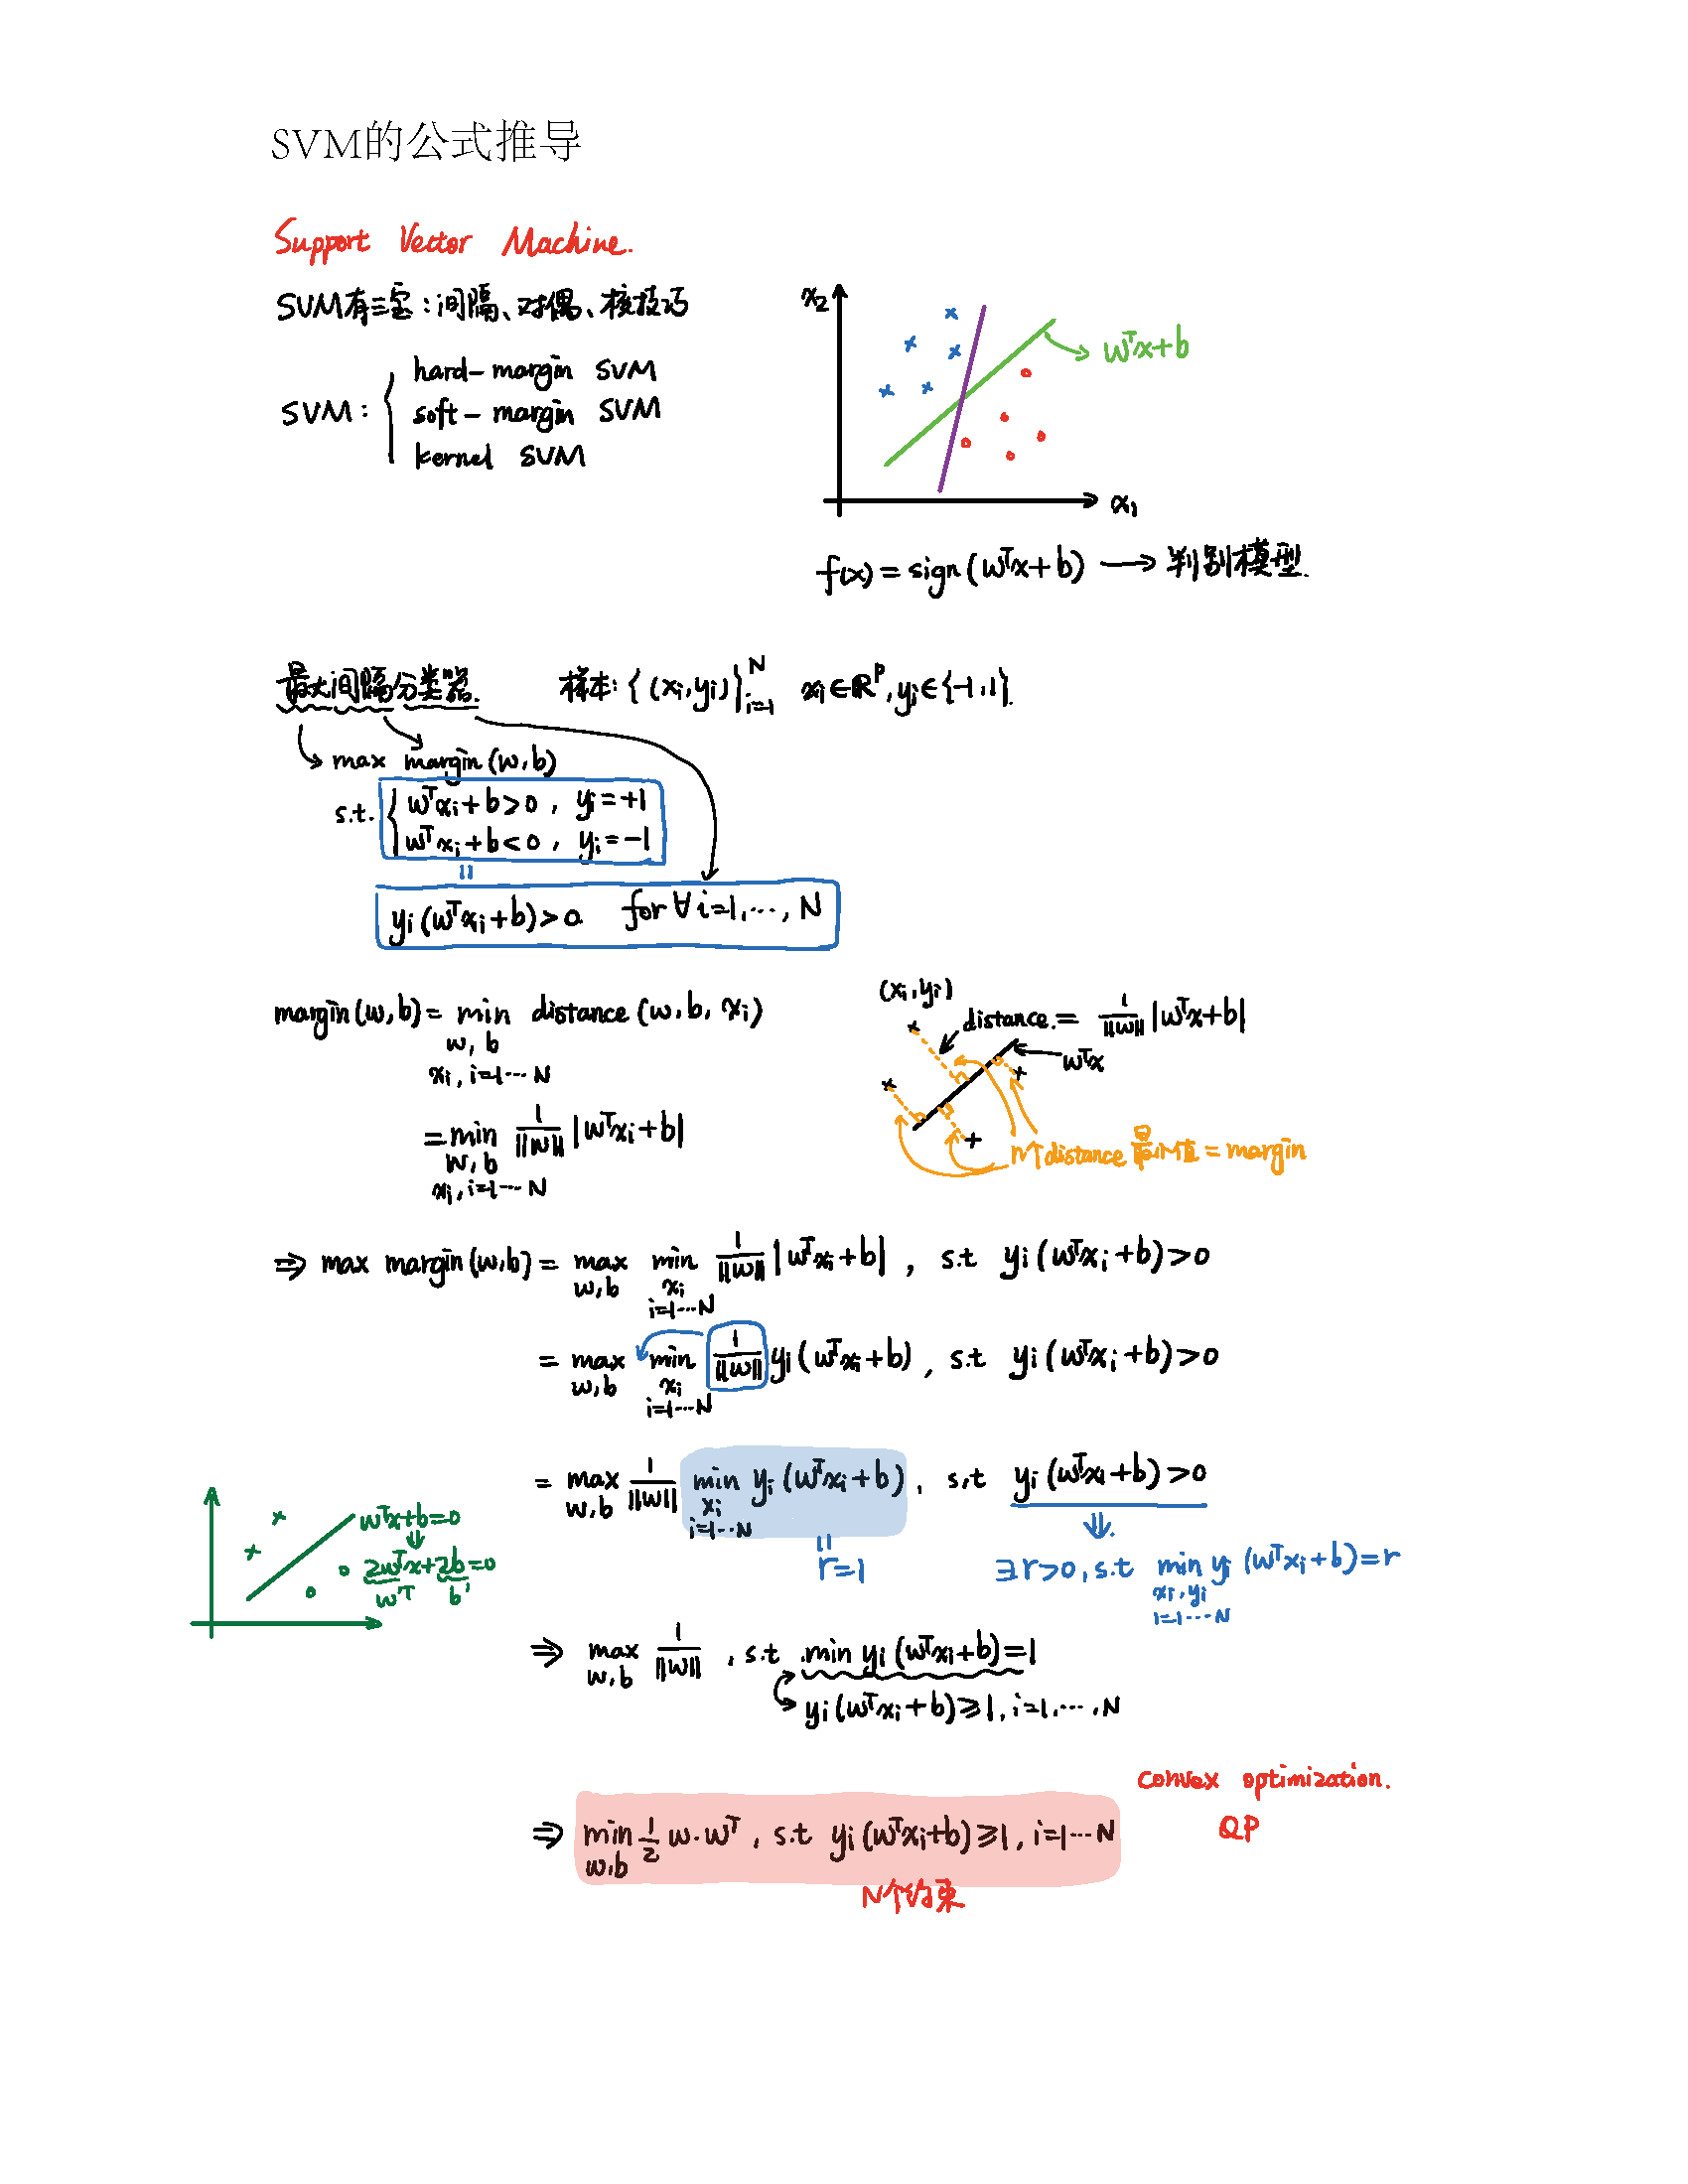 SVM的公式推导
Support Vector Machine.
SVM有三宝:间隔、对偶、核技巧
SVM: { hard-margin SVM
soft-margin SVM
kernel SVM
x₂
wᵀx+b
x₁
f(x)=sign(wᵀx+b) → 判别模型.
最大间隔分类器. 样本: {(xᵢ,yᵢ)}ᵢ₌₁ᴺ xᵢ∈ℝᵖ, yᵢ∈{-1,1}.
max margin(w,b)
s.t. { wᵀxᵢ+b>0, yᵢ=+1
wᵀxᵢ+b<0, yᵢ=-1
=
yᵢ(wᵀxᵢ+b)>0. for ∀i=1,…,N
margin(w,b)= min distance(w,b,xᵢ)
w,b
xᵢ, i=1…N
= min 1/||w|| |wᵀxᵢ+b|
w,b
xᵢ, i=1…N
(xᵢ,yᵢ)
distance.= 1/||w|| |wᵀx+b|
wᵀx
n个distance最小值=margin
⇒ max margin(w,b)= max min 1/||w|| |wᵀxᵢ+b|, s.t yᵢ(wᵀxᵢ+b)>0
w,b xᵢ
i=1…N
= max min 1/||w|| yᵢ(wᵀxᵢ+b), s.t yᵢ(wᵀxᵢ+b)>0
w,b xᵢ
i=1…N
= max 1/||w|| min yᵢ(wᵀxᵢ+b), s.t yᵢ(wᵀxᵢ+b)>0
w,b xᵢ
i=1…N
=
r=1
⇓.
∃r>0, s.t min yᵢ(wᵀxᵢ+b)=r
xᵢ,yᵢ
i=1…N
wᵀx+b=0
⇓
2wᵀx+2b=0
w'ᵀ b'
⇒ max 1/||w||, s.t min yᵢ(wᵀxᵢ+b)=1
w,b
yᵢ(wᵀxᵢ+b)≥1, i=1,…,N
convex optimization.
QP
⇒ min 1/2 w·wᵀ, s.t yᵢ(wᵀxᵢ+b)≥1, i=1…N
w,b
N个约束